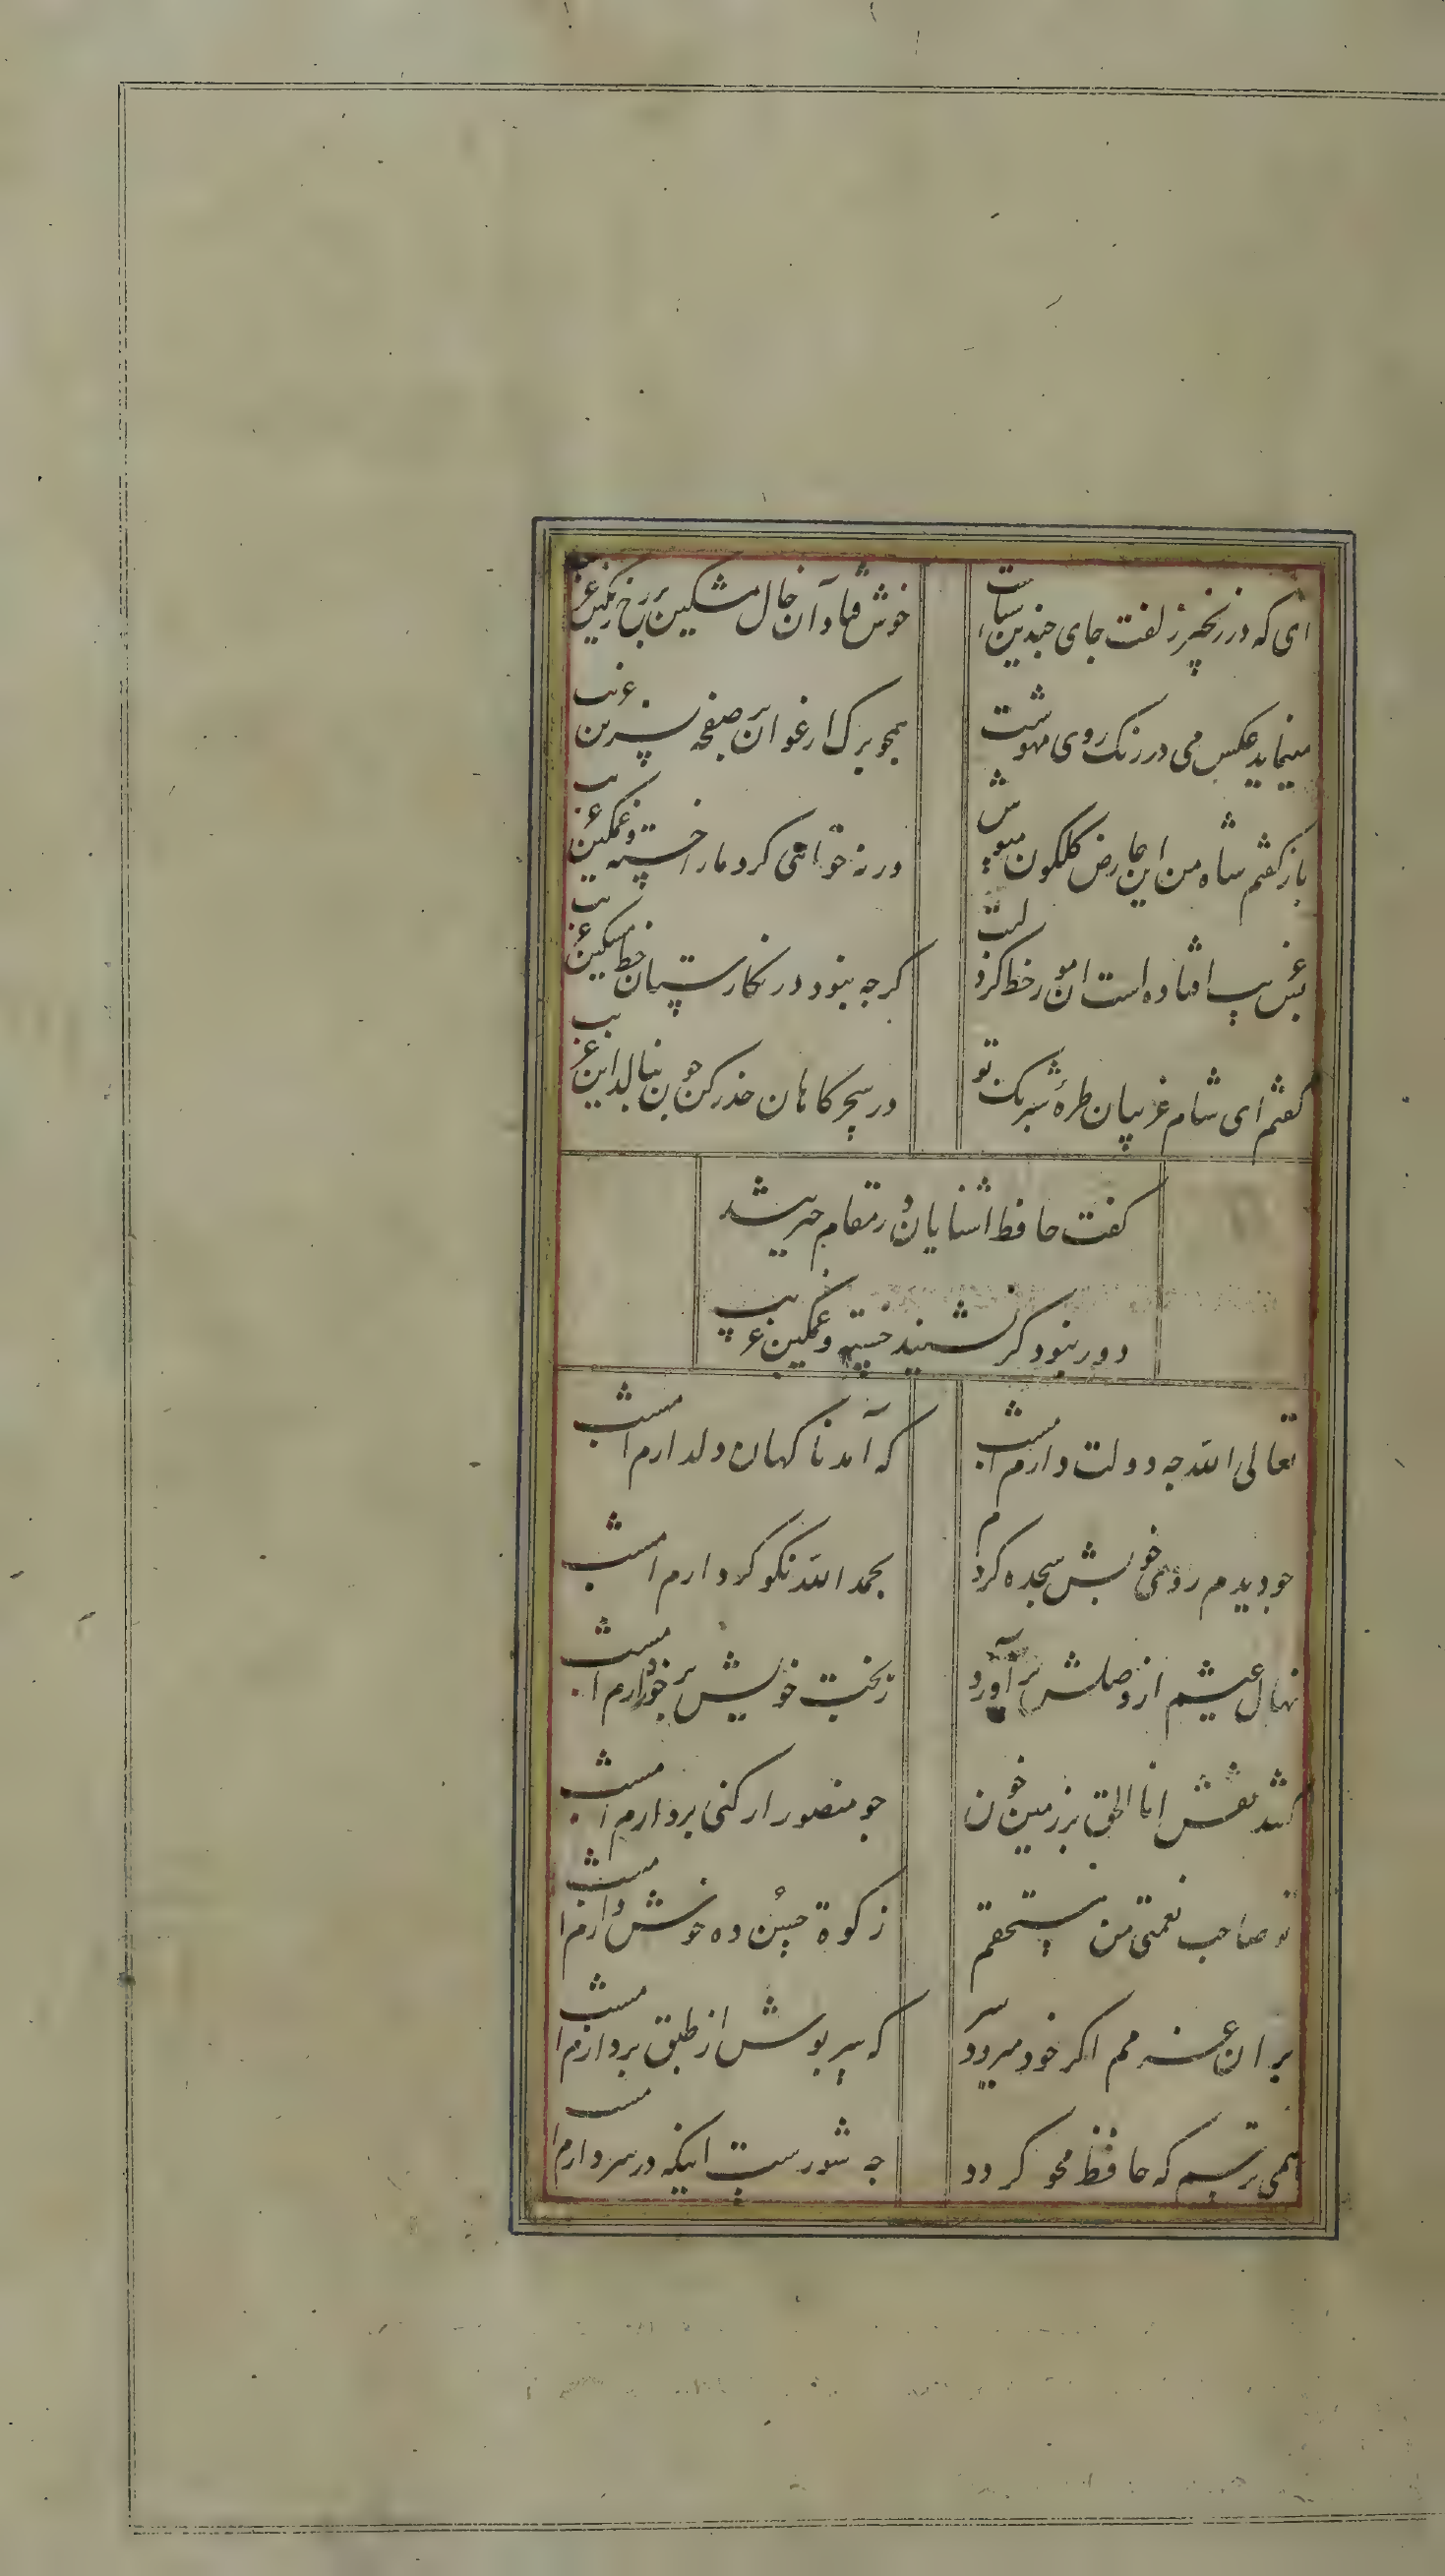 ای که در زنجیر زلفت جای چندین آشناست
خوش فتاد آن خال مشکین بر رخ رنگین غریب
مینماید عکس می در رنک روی مهوشت
همجو برک ارغوان بر صفحه نسرین غریب
باز کفتم شاه من این عارض کلکون مپوش
ورنه خواهی کرد مارا خسته و غمکین غریب
بس غریب افتاده است ان مور خط کرد لبت
کرجه نبود در نکارستان خط مسکین غریب
کفتم ای شام غریبان طره شبرنک تو
در سحرکاهان حذر کن جون بنالد این غریب
کفت حافظ اشنایان در مقام حیرتند
دور نبود کر نشیند خسته و غمکین غریب
تعالی الله جه دولت دارم امشب
که آمد ناکهان دلدارم امشب
جو دیدم روی خوبش سجده کردم
بحمد الله نکو کردارم امشب
نهال عیشم از وصلش بر آورد
ز بخت خویش بر خوردارم امشب
کشد نقش انا الحق بر زمین خون
جو منصور ار کنی بر دارم امشب
تو صاحب نعمتی من مستحقم
زکوة حسن ده خوش دارم امشب
بر ان عزمم اکر خود میرود سر
که سر پوش از طبق بردارم امشب
همی ترسم که حافظ محو کردد
جه شورست اینکه در سر دارم امشب